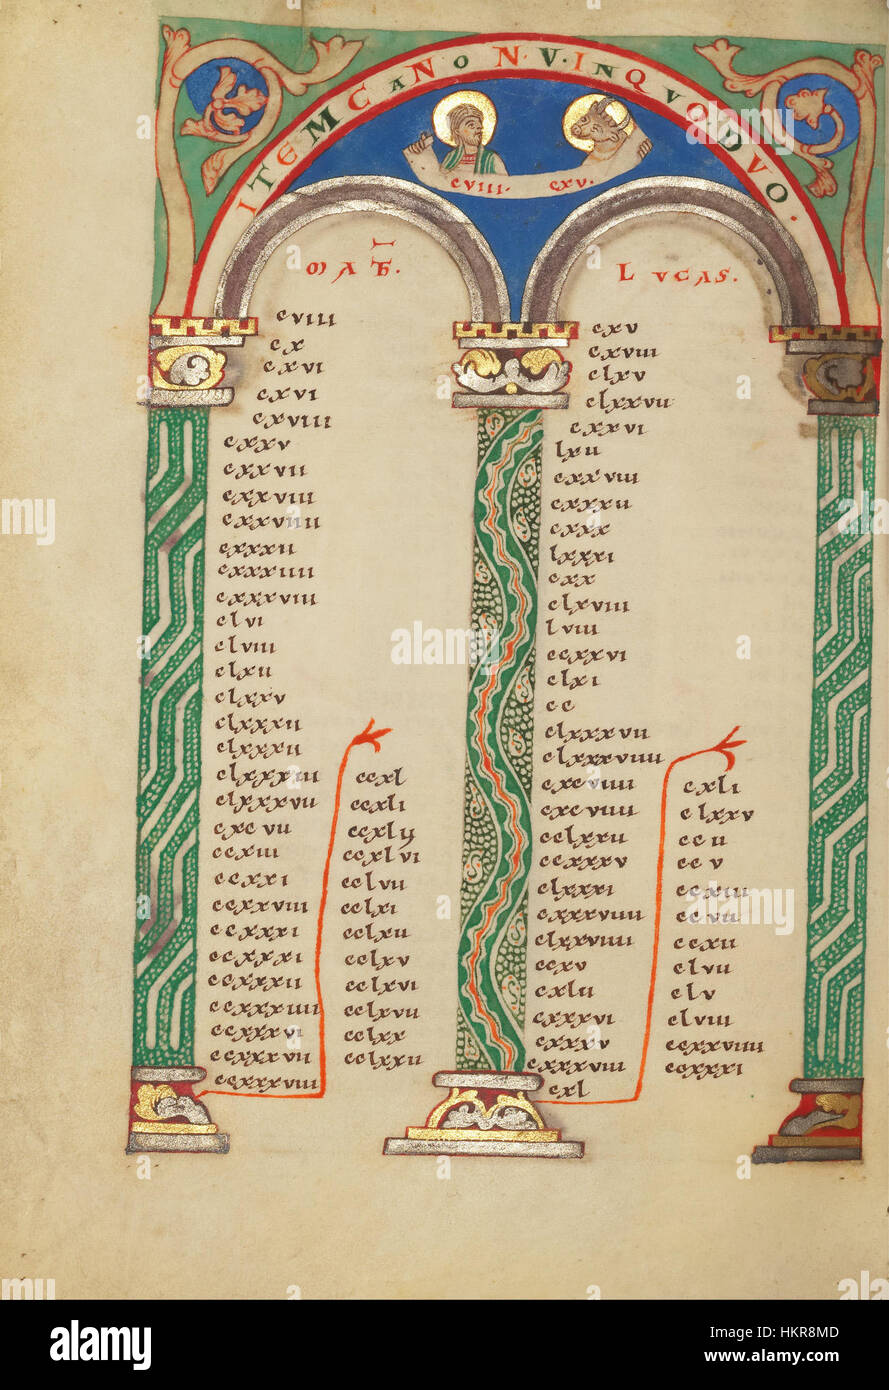 ITEM CANON · V · IN QVO · DVO ·
cviii · cxv ·
MATH ·
LVCAS ·
cviii
cx
cxvi
cxvi
cxviii
cxxv
cxxvii
cxxviii
cxxviiii
cxxxii
cxxxiiii
cxxxviii
clvi
clviii
clxii
clxxv
clxxxii
clxxxii
clxxxiii
clxxxvii
cxcvii
ccxiii
ccxxi
ccxxviii
ccxxxi
ccxxxi
ccxxxii
ccxxxiiii
ccxxxvi
ccxxxvii
ccxxxviii
ccxl
ccxli
ccxlv
ccxlvi
cclvii
cclxi
cclxii
cclxv
cclxvi
cclxvii
cclxx
cclxxii
cxv
cxviii
clxv
clxxvii
cxxvi
lxii
cxxviii
cxxxii
cxxx
lxxxi
cxx
clxviii
lviii
ccxxvi
clxi
cc
clxxxvii
clxxxviiii
cxcviiii
cxcviiii
cclxxii
ccxxxv
clxxxi
cxxxviiii
clxxviiii
ccxv
cxlii
cxxxvi
cxxxv
cxxxviii
cxl
cxli
clxxv
ccii
ccv
ccxiii
ccvii
ccxii
clvii
clv
clviii
ccxxviiii
ccxxxi
alamy
alamy
Image ID: HKR8MD
www.alamy.com